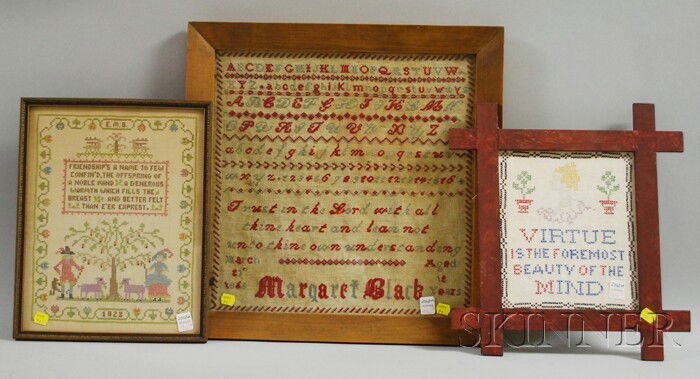 E.M.B.
FRIENDSHIP'S A NAME TO FEW
CONFIN'D, THE OFFSPRING OF
A NOBLE MIND A GENEROUS
WARMTH WHICH FILLS THE
BREAST AND BETTER FELT
THAN E'ER EXPREST.
1922
ABCDEFGHIJKLMNOPQRSTUVW
XYZ abcdefghijklmnopqrstuvwxyz
ABCDEFGHIJKLMN
OPQRSTUVWXYZ
abcdefghijklmnopqrstuv
wxyz 12345678910111213141516
Trust in the Lord with all
thine heart and lean not
unto thine own understanding
March
Aged
Margaret Black
Years
VIRTUE
IS THE FOREMOST
BEAUTY OF THE
MIND
SKINNER